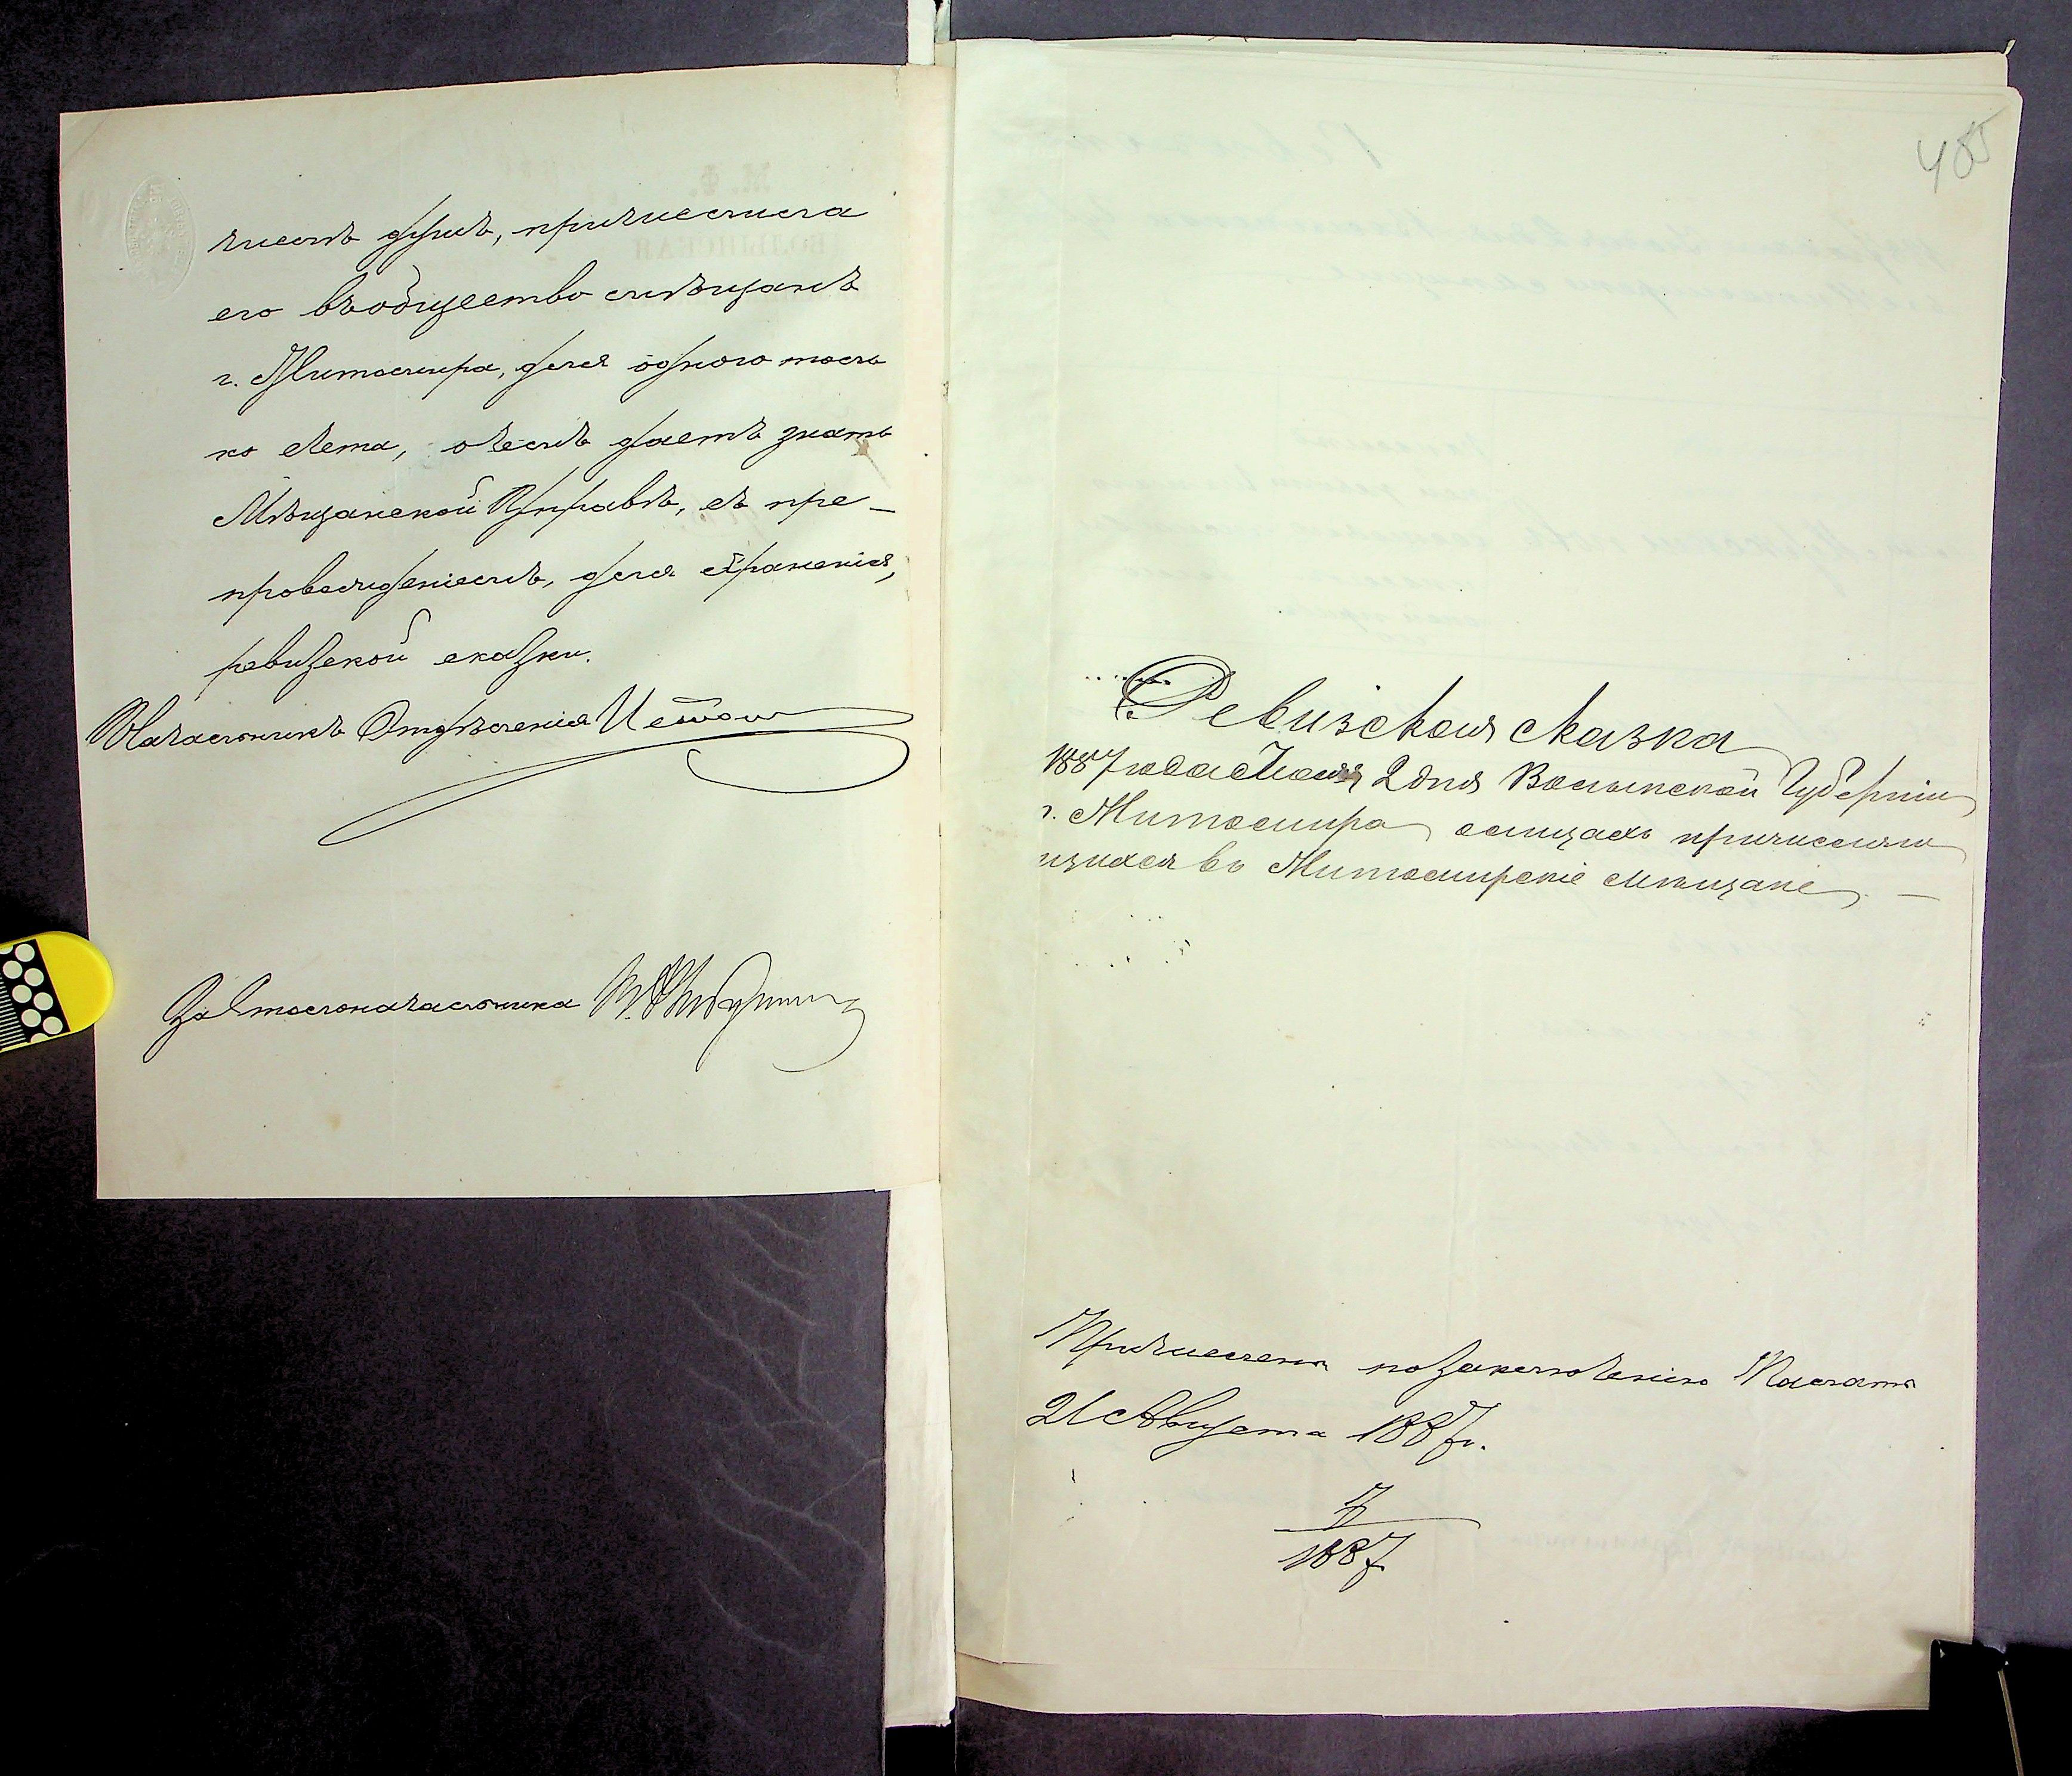 числѣ душъ, причислила
его въ общество мѣщанъ
г. Житомира, для одного толь
ко счета, о чемъ даетъ знать
Мѣщанской Управѣ, съ пре-
провожденіемъ, для храненія,
ревизской сказки.
Начальникъ Отдѣленія
За Столоначальника
485
Ревизская сказка
1887 года Іюля 2 дня Волынской Губерніи
г. Житомира о лицахъ причисляю
щихся въ Житомирскіе мѣщане. —
Причислены по заключенію Палаты
21 Августа 1887 г.
7
1887